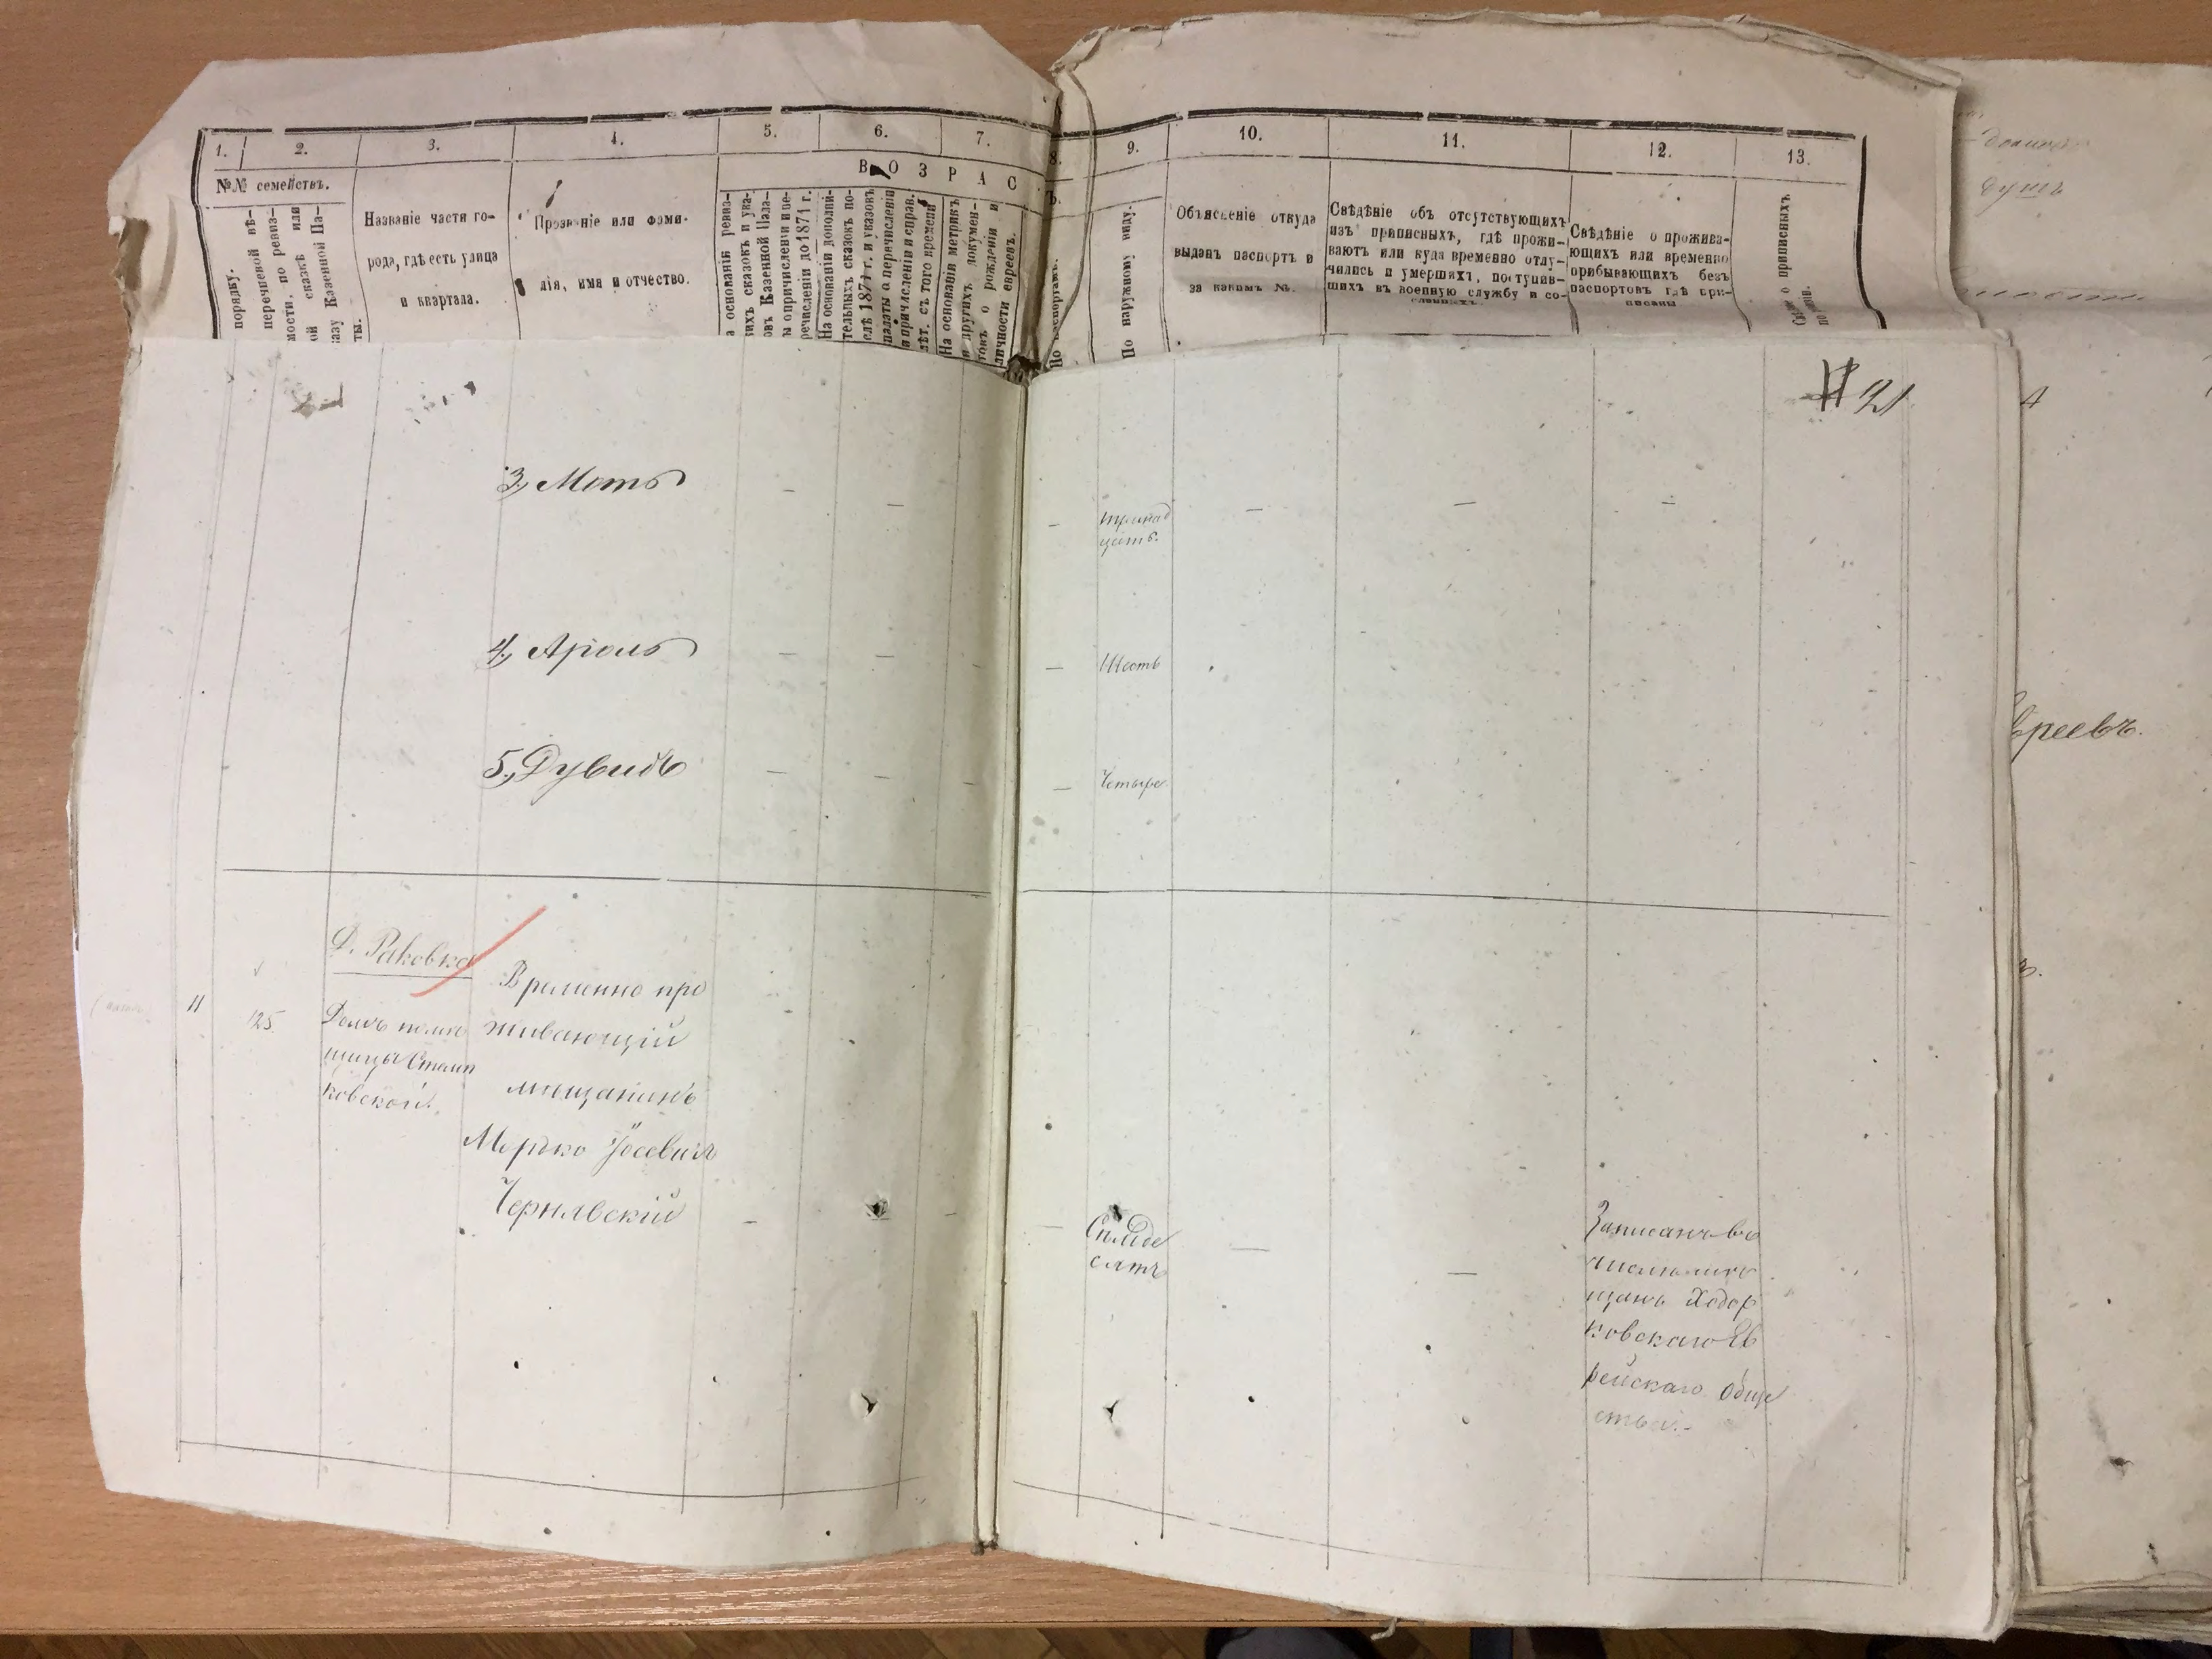 1. 2. 3. 4. 5. 6. 7.
8. 9. 10. 11. 12. 13.
№№ семействъ.
ВОЗРАС
Ъ.
порядку.
перечневой вѣ-
мости, по ревиз-
ой сказкѣ или
казу Казенной Па-
ты.
Названіе части го-
рода, гдѣ есть улица
и квартала.
Прозваніе или фами-
лія, имя и отчество.
а основаніи ревиз-
ихъ сказокъ и ука-
овъ Казенной Пала-
ы о причисленіи и пе-
речисленіи до 1871 г.
На основаніи дополни-
тельныхъ сказокъ по-
слѣ 1871 г. и указовъ
палаты о перечисленіи
и причисленіи и справ.
лѣт. съ того времени
На основаніи метрикъ
и другихъ докумен-
товъ о рожденіи и
личности евреевъ.
По паспортамъ.
По наружному виду.
Объясненіе откуда
выданъ паспортъ и
за какимъ №.
Свѣдѣніе объ отсутствующихъ
изъ приписныхъ, гдѣ прожи-
ваютъ или куда временно отлу-
чились и умершихъ, поступив-
шихъ въ военную службу и со-
сланныхъ.
Свѣдѣніе о прожива-
ющихъ или временно
прибывающихъ безъ
паспортовъ гдѣ при-
писаны
о приписныхъ
21
3, Моть
тринад
цать.
4, Аролъ
Шесть
5, Дувидъ
Четыре
Д. Раковка
11
125
Домъ помѣ
щицы
ковской.
Временно про
живающій
мѣщанинъ
Мерько Іосевичъ
Чернявскій
Семьде
сятъ
Записанъ въ
числѣ мѣ
щанъ Ходор
ковскаго Ев
рейскаго обще
ства.
душъ
4
вреевъ.